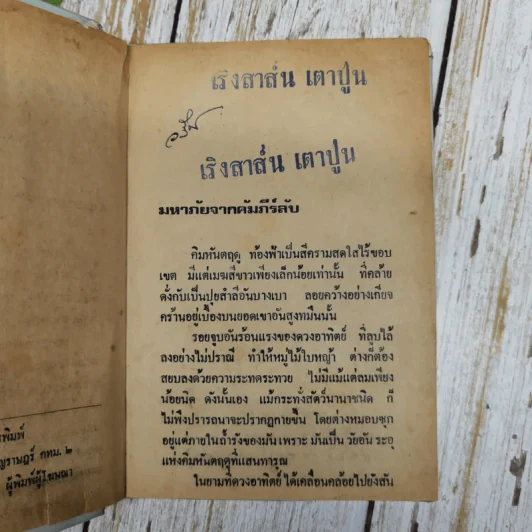 เริงสาส์น เตาปูน
เริงสาส์น เตาปูน
มหาภัยจากคัมภีร์ลับ
คิมหันตฤดู ท้องฟ้าเป็นสีครามสดใสไร้ขอบ
เขต มีแต่เมฆสีขาวเพียงเล็กน้อยเท่านั้น ที่คล้าย
ดั่งกับเป็นปุยสำลีอันบางเบา ลอยคว้างอย่างเกียจ
คร้านอยู่เบื้องบนยอดเขาอันสูงทมึนนั้น
รอยจูบอันร้อนแรงของดวงอาทิตย์ ที่ลูบไล้
ลงอย่างไม่ปราณี ทำให้หมู่ไม้ใบหญ้า ต่างก็ต้อง
สยบลงด้วยความระทดระทวย ไม่มีแม้แต่ลมเพียง
น้อยนิด ดังนั้นเอง แม้กระทั่งสัตว์นานาชนิด ก็
ไม่พึงปรารถนาจะปรากฏกายขึ้น โดยต่างหมอบซุก
อยู่แต่ภายในถ้ำรังของมัน เพราะ มันเป็น วัยอัน ระอุ
แห่งคิมหันตฤดูที่แสนทารุณ
ในยามที่ดวงอาทิตย์ ได้เคลื่อนคล้อยไปยังสัน
พิมพ์
ราษฎร์ กทม. ๒
ผู้พิมพ์ผู้โฆษณา